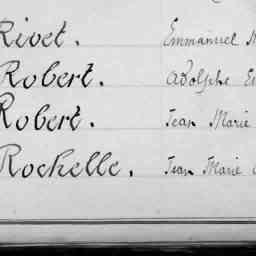 Rivet. Emmanuel
Robert. Adolphe
Robert. Jean Marie
Rochelle. Jean Marie